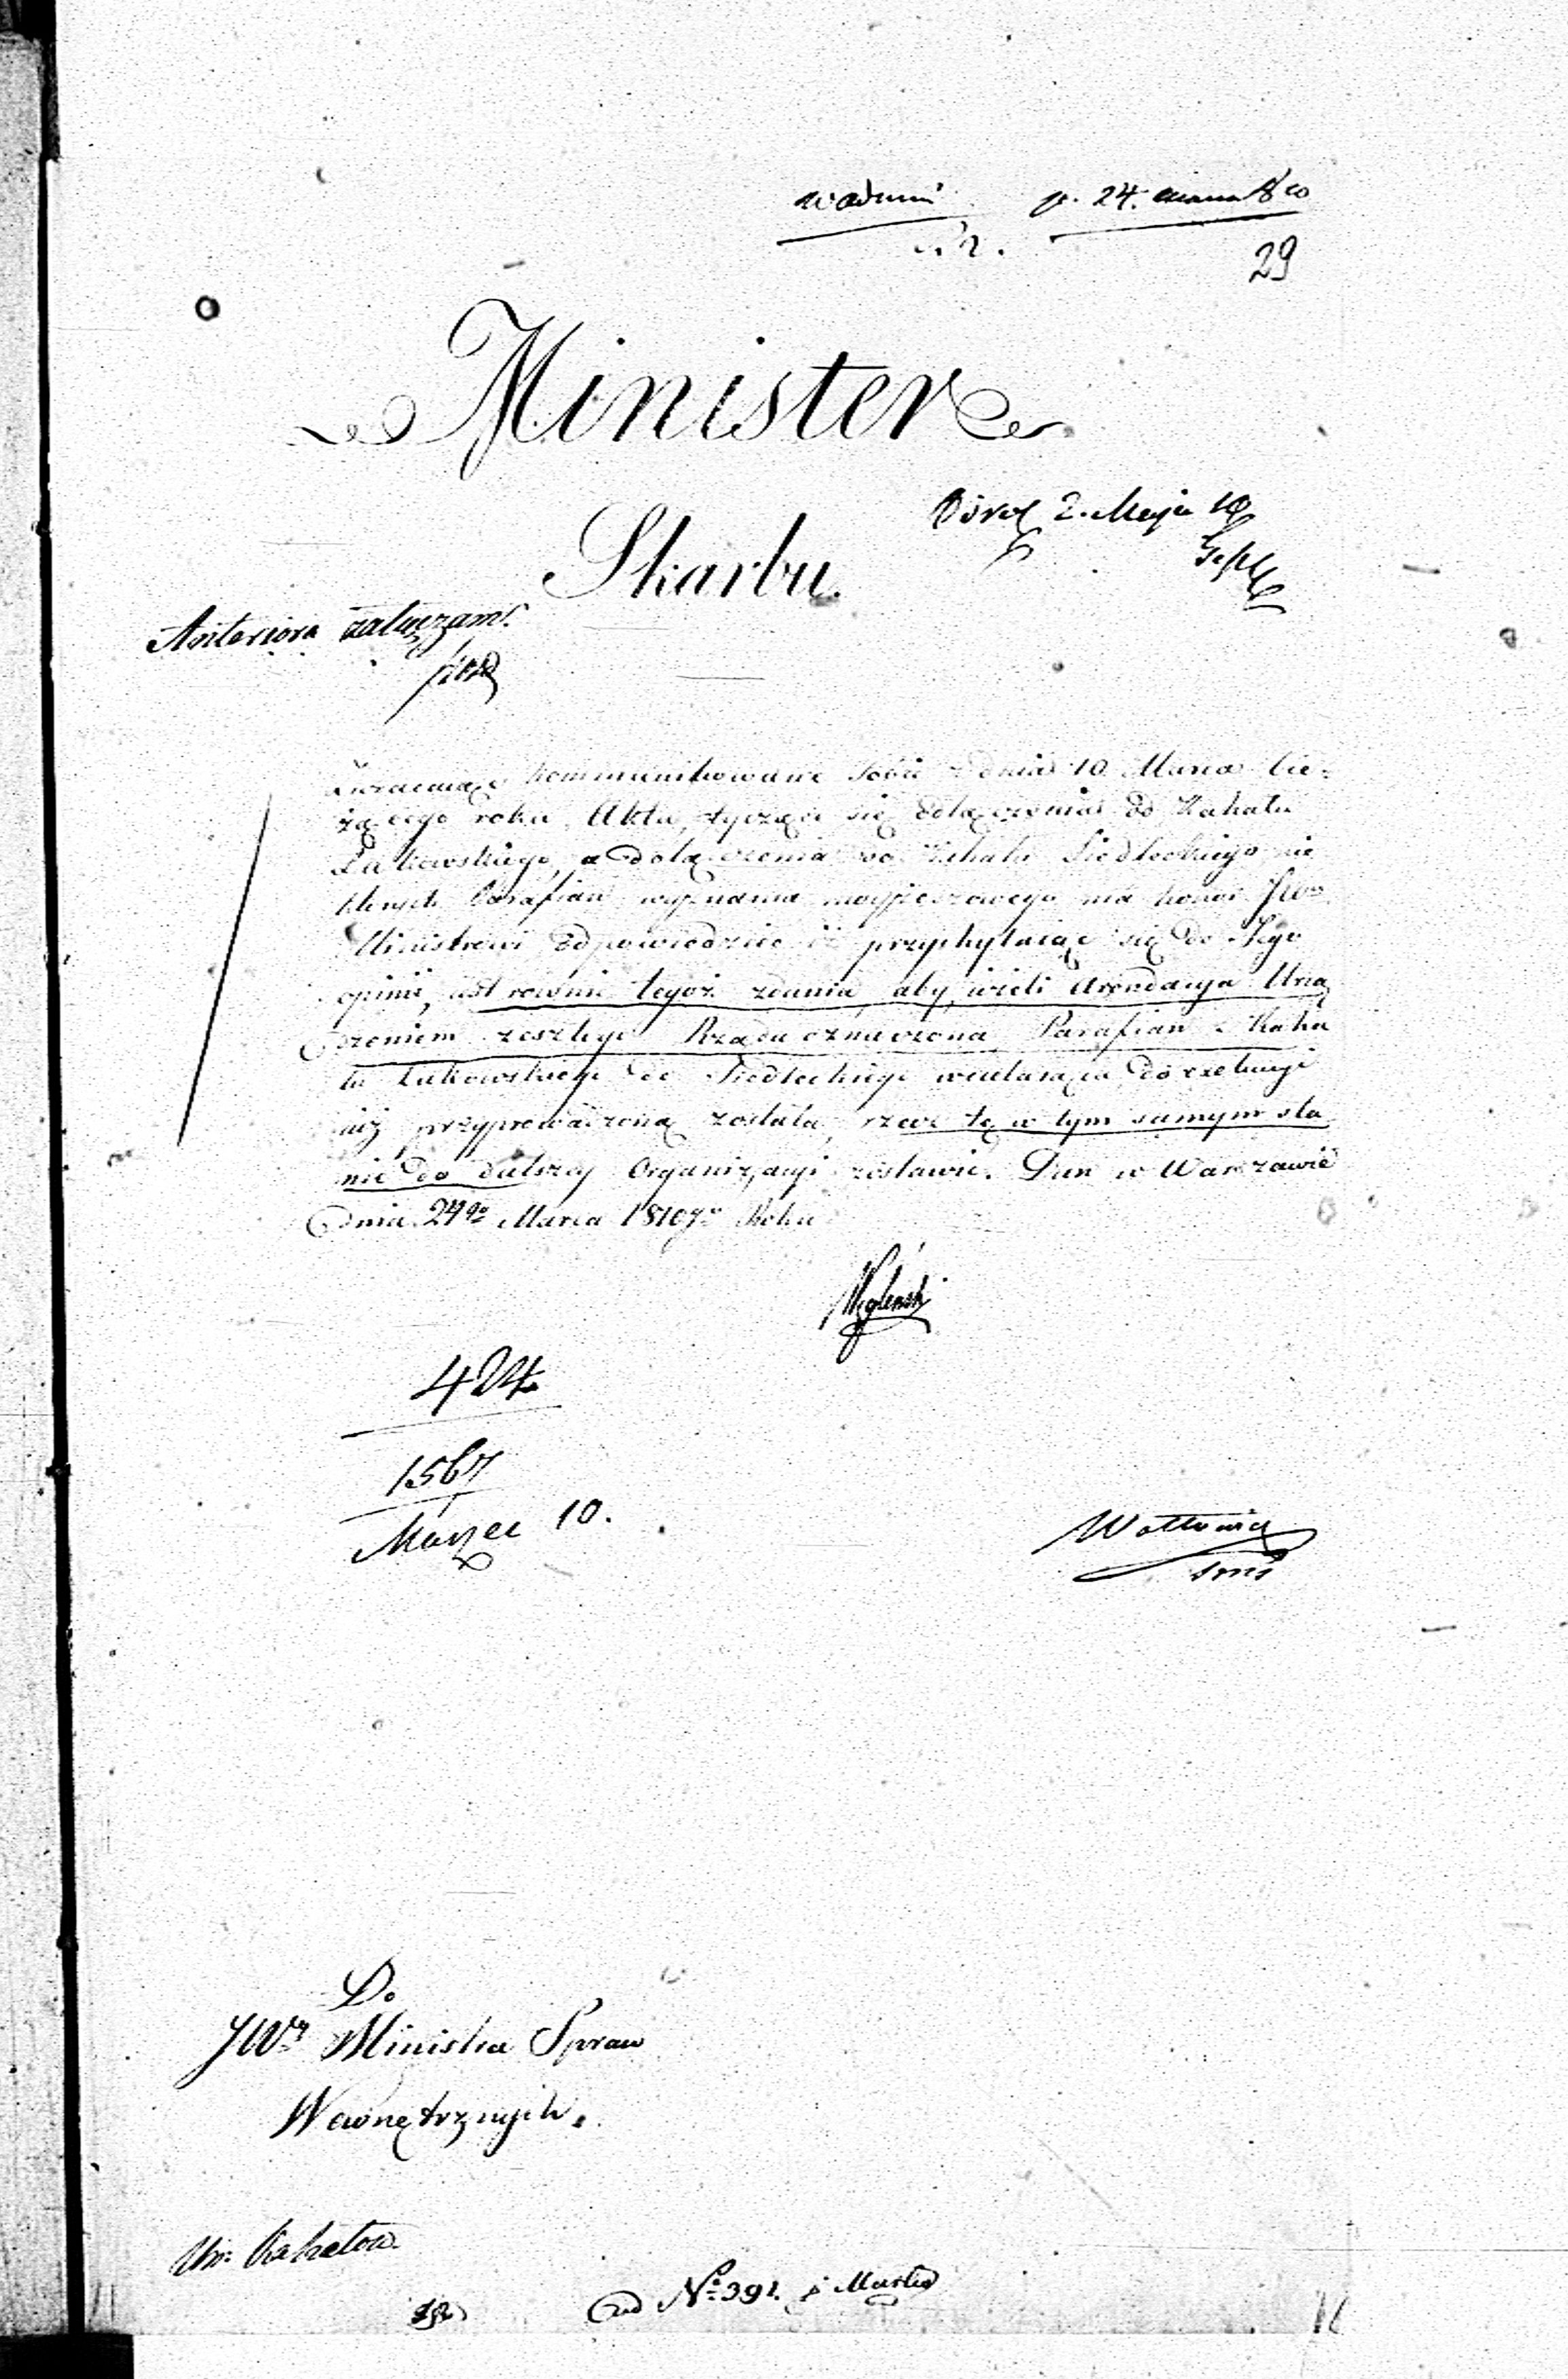 p. 24. 
29
Minister
Skarbu.
2. Maja 10
Anteriora załączam.
Zwracaiąc kommunikowane Sobie z dnia 10 Marca bie=
żącego roku Akta, tyczące się odłączenia od Kahału
Łukowskiego, a dołączenia do Kahału Siedleckiego nie
których Parafian wyznania moyżeszowego ma honor JWo
Ministrowi odpowiedzieć iż przychylaiąc się do Jego
opinii, iest rownie tegoż zdania, aby, ieżeli Arondacya Urzą
dzeniem zeszłego Rządu oznaczona Parafian z Kaha
łu Łukowskiego do Siedleckiego wcielaiąca do exekucyi
niż przyprowadzoną została, rzecz tę w tym samym sta
nie do dalszey Organizacyi zostawić. Dan w Warszawie
dnia 24go Marca 1810go Roku
Węgleński
424
1567
Marzec 10.
Do
JWo Ministra Spraw
Wewnętrznych.
Kahałow
ad No 391. Martio